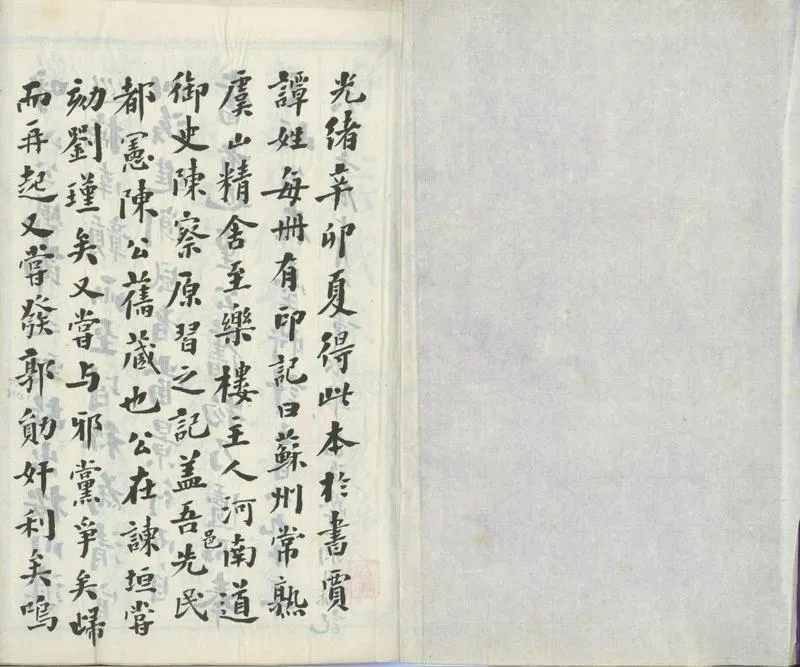 光緒辛卯夏得此本於書賈
譚姓每冊有印記曰蘇州常熟
虞山精舍至樂樓主人河南道
御史陳察原習之記盖吾邑先民
都憲陳公舊蔵也公在諫垣嘗
劾劉瑾矣又嘗与邪黨爭矣歸
而再起又嘗發郭勛奸利矣嗚